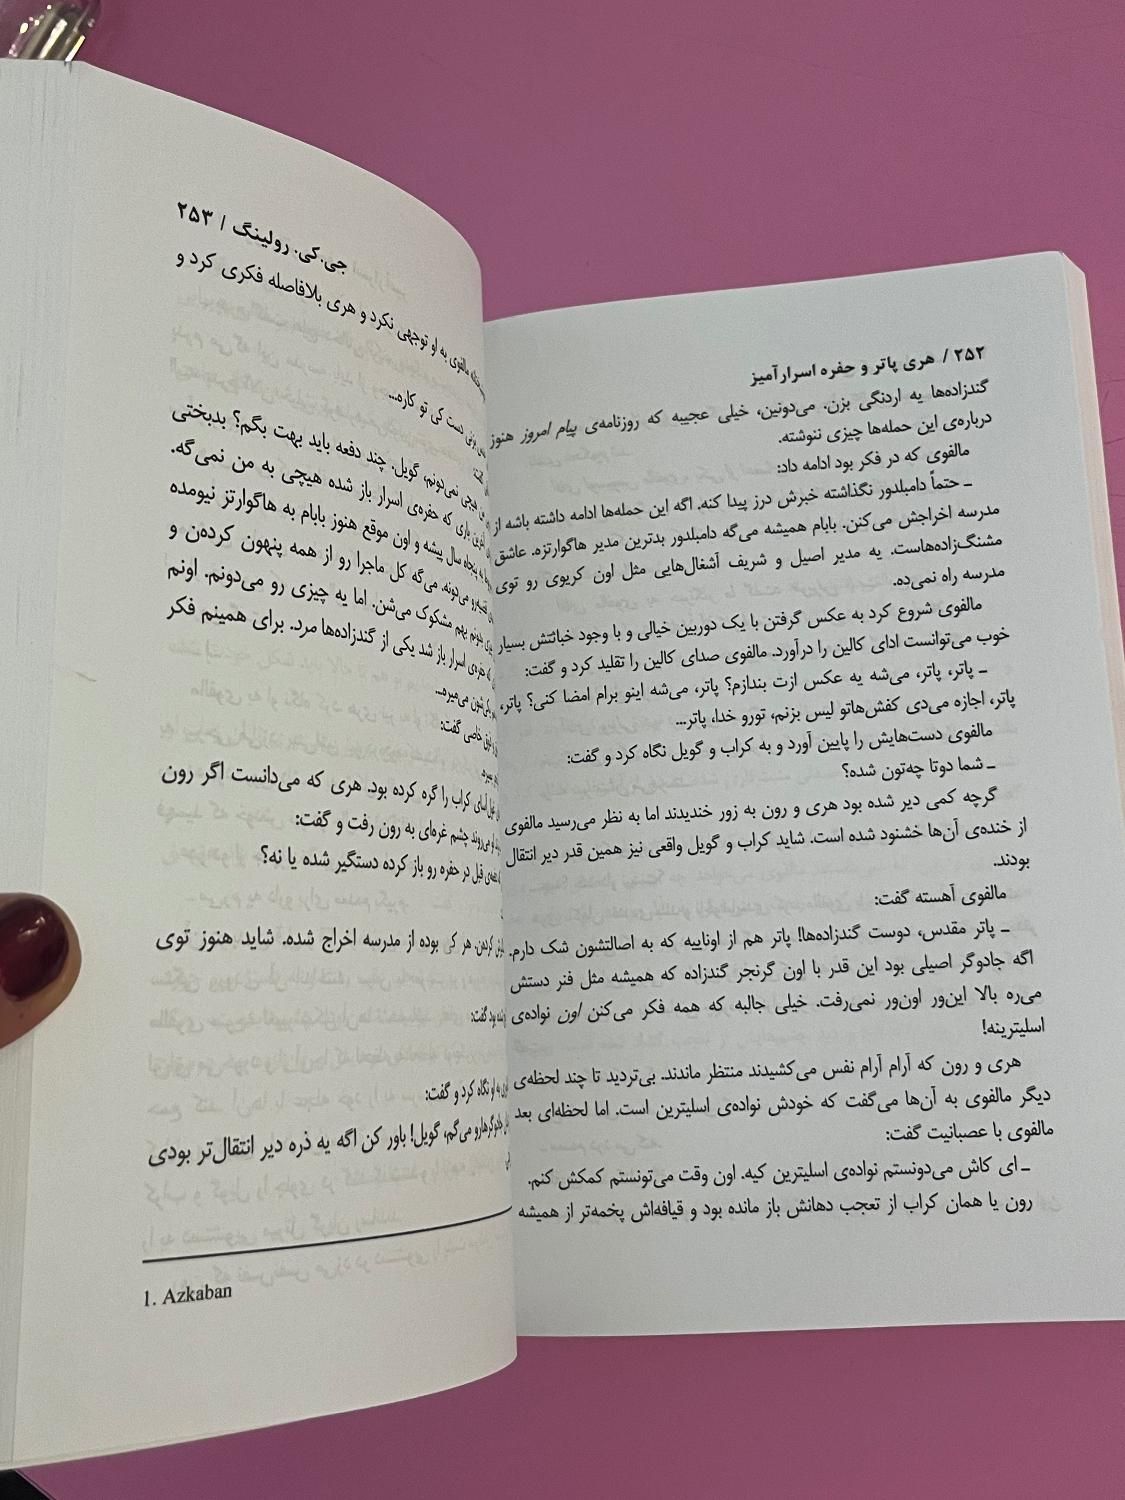 ۲۵۲ / هری پاتر و حفره اسرارآمیز
گندزاده‌ها یه اردنگی بزن. می‌دونین، خیلی عجیبه که روزنامه‌ی پیام امروز هنوز
درباره‌ی این حمله‌ها چیزی ننوشته.
مالفوی که در فکر بود ادامه داد:
ـ حتماً دامبلدور نگذاشته خبرش درز پیدا کنه. اگه این حمله‌ها ادامه داشته باشه از
مدرسه اخراجش می‌کنن. بابام همیشه می‌گه دامبلدور بدترین مدیر هاگوارتزه. عاشق
مشنگ‌زاده‌هاست. یه مدیر اصیل و شریف آشغال‌هایی مثل اون کریوی رو توی
مدرسه راه نمی‌ده.
مالفوی شروع کرد به عکس گرفتن با یک دوربین خیالی و با وجود خباثتش بسیار
خوب می‌توانست ادای کالین را درآورد. مالفوی صدای کالین را تقلید کرد و گفت:
ـ پاتر، پاتر، می‌شه یه عکس ازت بندازم؟ پاتر، می‌شه اینو برام امضا کنی؟ پاتر،
پاتر، اجازه می‌دی کفش‌هاتو لیس بزنم، تورو خدا، پاتر...
مالفوی دست‌هایش را پایین آورد و به کراب و گویل نگاه کرد و گفت:
ـ شما دوتا چه‌تون شده؟
گرچه کمی دیر شده بود هری و رون به زور خندیدند اما به نظر می‌رسید مالفوی
از خنده‌ی آن‌ها خشنود شده است. شاید کراب و گویل واقعی نیز همین قدر دیر انتقال
بودند.
مالفوی آهسته گفت:
ـ پاتر مقدس، دوست گندزاده‌ها! پاتر هم از اوناییه که به اصالتشون شک دارم.
اگه جادوگر اصیلی بود این قدر با اون گرنجر گندزاده که همیشه مثل فنر دستش
می‌ره بالا این‌ور اون‌ور نمی‌رفت. خیلی جالبه که همه فکر می‌کنن اون نواده‌ی
اسلیترینه!
هری و رون که آرام آرام نفس می‌کشیدند منتظر ماندند. بی‌تردید تا چند لحظه‌ی
دیگر مالفوی به آن‌ها می‌گفت که خودش نواده‌ی اسلیترین است. اما لحظه‌ای بعد
مالفوی با عصبانیت گفت:
ـ ای کاش می‌دونستم نواده‌ی اسلیترین کیه. اون وقت می‌تونستم کمکش کنم.
رون یا همان کراب از تعجب دهانش باز مانده بود و قیافه‌اش پخمه‌تر از همیشه
جی.کی. رولینگ / ۲۵۳
مالفوی به او توجهی نکرد و هری بلافاصله فکری کرد و
دست کی تو کاره...
هیچی نمی‌دونم، گویل. چند دفعه باید بهت بگم؟ بدبختی
باری که حفره‌ی اسرار باز شده هیچی به من نمی‌گه.
پنجاه سال پیشه و اون موقع هنوز بابام به هاگوارتز نیومده
می‌دونه. می‌گه کل ماجرا رو از همه پنهون کرده‌ن و
بهم مشکوک می‌شن. اما یه چیزی رو می‌دونم. اونم
حفره‌ی اسرار باز شد یکی از گندزاده‌ها مرد. برای همینم فکر
یکی‌شون می‌میره...
خاصی گفت:
کراب را گره کرده بود. هری که می‌دانست اگر رون
می‌روند چشم غره‌ای به رون رفت و گفت:
قبل در حفره رو باز کرده دستگیر شده یا نه؟
کردن. هر کی بوده از مدرسه اخراج شده. شاید هنوز توی
بود گفت:
به او نگاه کرد و گفت:
می‌گم، گویل! باور کن اگه یه ذره دیر انتقال‌تر بودی
1. Azkaban